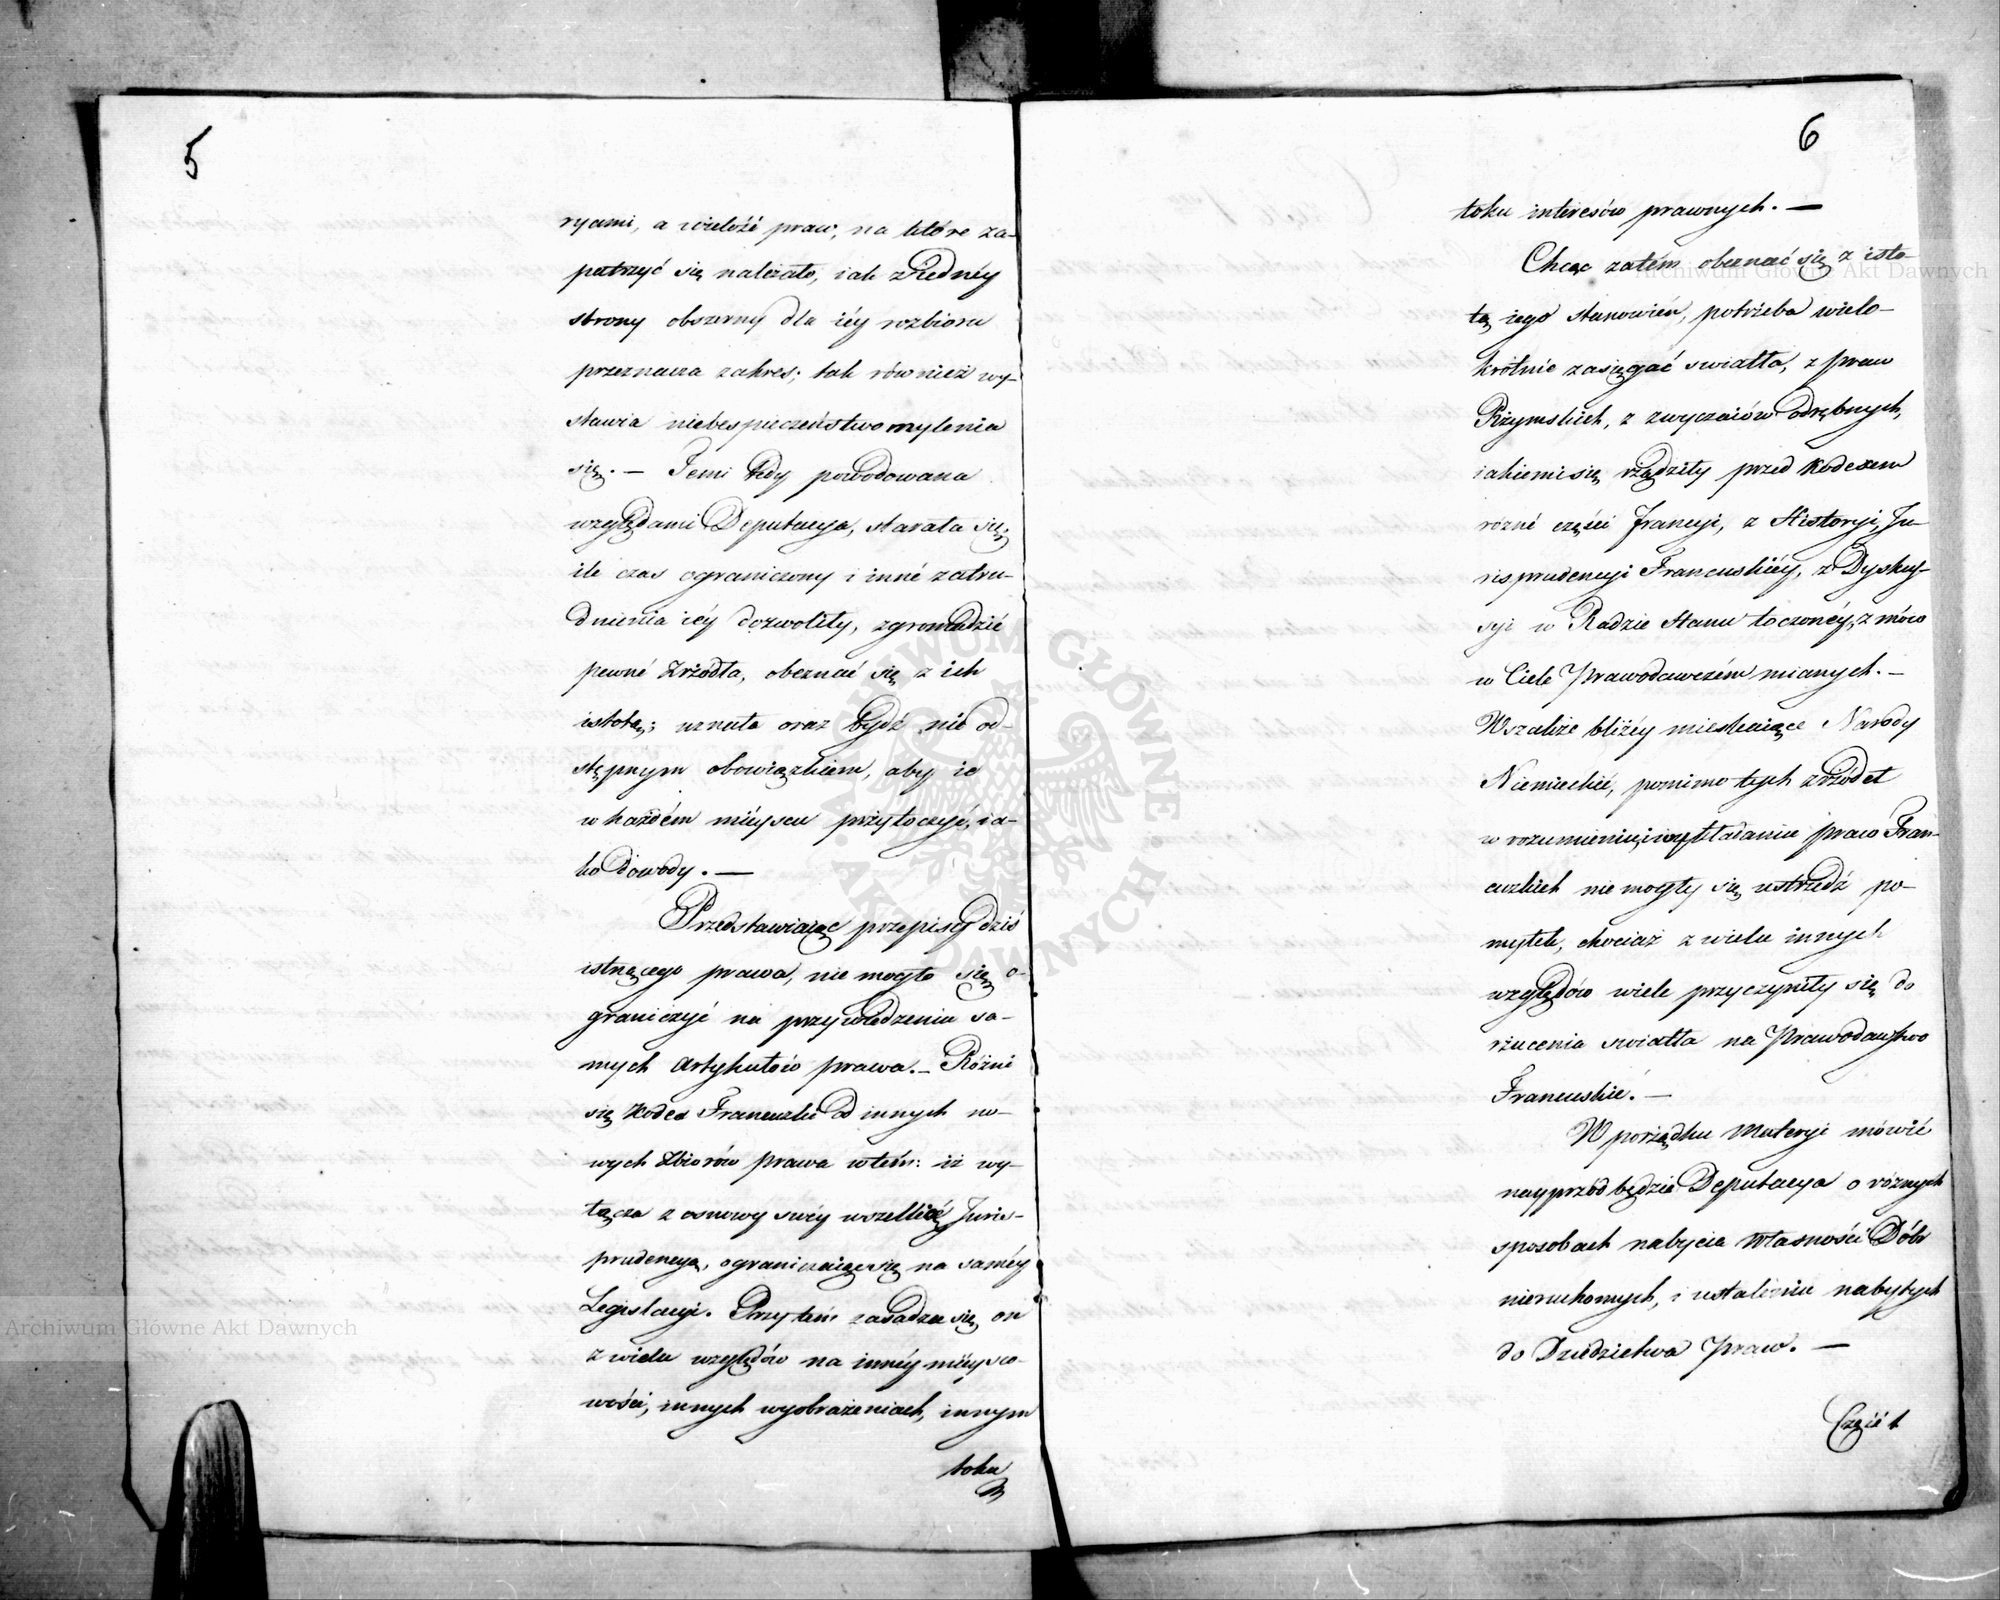 5
ryami, a wielość praw, na które za-
patrzyć się należało, iak z iednéy
strony obszerny dla iéy rozbioru
przeznacza zakres; tak również wy-
stawia niebespieczeństwo mylenia
się. — Temi tedy powodowana
względami Deputacya, starała się,
ile czas ograniczony i inné zatru-
dnienia iéy dozwoliły, zgromadzić
pewné zrźódła, obeznać się z ich
istotą; uznała oraz bydź nie od-
stępnym obowiązkiem, aby ie
w każdém mieyscu przytoczyć, ia-
ko Dowody. —
Przedstawiaiąc przepisy dziś
istnącego prawa, nie mogła się o-
graniczyć na przywiedzeniu sa-
mych Artykułów prawa. — Różni
się Kodex Francuzki od innych no-
wych zbiorów prawa w tém: iż wy-
łącza z osnowy swéy wszelkié Juris-
prudencyą, ograniczaiąc się na saméy
Legislacyi. Przytém zasadza się on
z wielu względów na innéy mieysco-
wości, innych wyobrażeniach, innym
toku
6
toku interesów prawnych. —
Chcąc zatém obeznać się z isto-
tą iego stanowień, potrzeba wielo-
krótnie zasięgać swiatła, z praw
Rzymskich, z zwyczaiów odrębnych,
iakiemi się rządziły przed Kodexem
rózné części Francyi, z Historyi, Ju-
risprudencyi Francuskiéy, z Dysku-
syi w Radzie Stanu toczonéy, z mów
w Ciele Prawodawczém mianych. —
Wszakże bliżéy mieszkaiące Narody
Niemieckié, pomimo tych zrźódeł
w rozumieniu i wykładaniu praw Fran-
cuzkich nie mogły się ustrzedź po-
myłek, chociaż z wielu innych
względów wiele przyczyniły się do
rzucenia swiatła na Prawodawstwo
Francuskié. —
W porządku Materyi mówić
nayprzód będzie Deputacya o róznych
sposobach nabycia Własności Dóbr
nieruchomych, i ustaleniu nabytych
do Dziedzictwa Praw. —
Część 1
Archiwum Główne Akt Dawnych
Archiwum Główne Akt Dawnych
ARCHIWUM GŁÓWNE AKT DAWNYCH